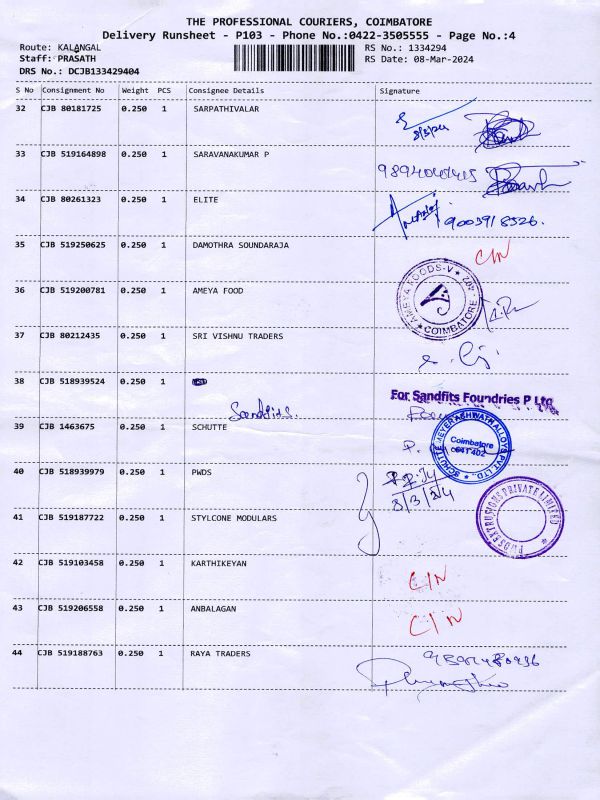 THE PROFESSIONAL COURIERS, COIMBATORE
Delivery Runsheet - P103 - Phone No.:0422-3505555 - Page No.:4
Route: KALANGAL RS No.: 1334294
Staff: PRASATH RS Date: 08-Mar-2024
DRS No.: DCJB133429404
S No Consignment No Weight PCS Consignee Details Signature
32 CJB 80181725 0.250 1 SARPATHIVALAR
8/3/24
33 CJB 519164898 0.250 1 SARAVANAKUMAR P
34 CJB 80261323 0.250 1 ELITE
9003918526.
35 CJB 519250625 0.250 1 DAMOTHRA SOUNDARAJA C/N
36 CJB 519200781 0.250 1 AMEYA FOOD
AMEYA FOODS-V ★ 402 ★ COIMBATORE
37 CJB 80212435 0.250 1 SRI VISHNU TRADERS
38 CJB 518939524 0.250 1
Sandfits. For Sandfits Foundries P Ltd
39 CJB 1463675 0.250 1 SCHUTTE
Coimbatore
40 CJB 518939979 0.250 1 PWDS
8/3/24
EXTRUSIONS PRIVATE LIMITED
41 CJB 519187722 0.250 1 STYLCONE MODULARS
42 CJB 519103458 0.250 1 KARTHIKEYAN C/N
43 CJB 519206558 0.250 1 ANBALAGAN C/N
44 CJB 519188763 0.250 1 RAYA TRADERS